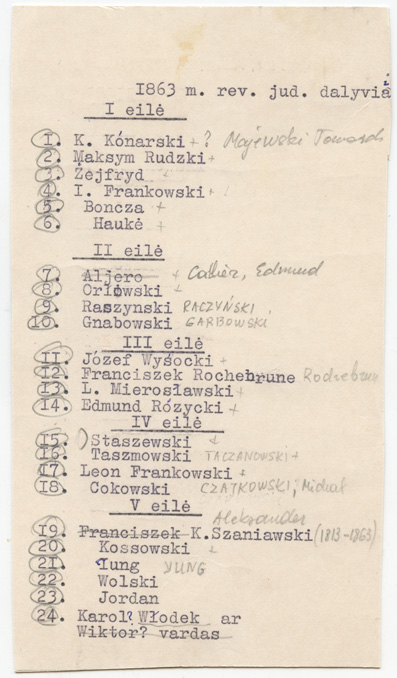 1863 m. rev. jud. dalyvia
I eilė
1. K. Kónarski +? Majewski Tomasz
2. Maksym Rudzki +
3. Zejfryd +
4. I. Frankowski +
5. Boncza +
6. Haukė +
II eilė
7. Aljero + Callier, Edmund
8. Orłowski +
9. Raszynski RACZYŃSKI
10. Gnabowski GARBOWSKI
III eilė
11. Józef Wysocki +
12. Franciszek Rochebrune Rochebrune
13. L. Mierosławski +
14. Edmund Rózycki +
IV eilė
15. )Staszewski +
16. Taszmowski TACZANOWSKI +
17. Leon Frankowski +
18. Cokowski CZAJKOWSKI, Michał
V eilė
Aleksander
19. Franciszek K.Szaniawski (1813-1863)
20. Kossowski +
21. Iung YUNG
22. Wolski
23. Jordan
24. Karol? Włodek ar
Wiktor? vardas